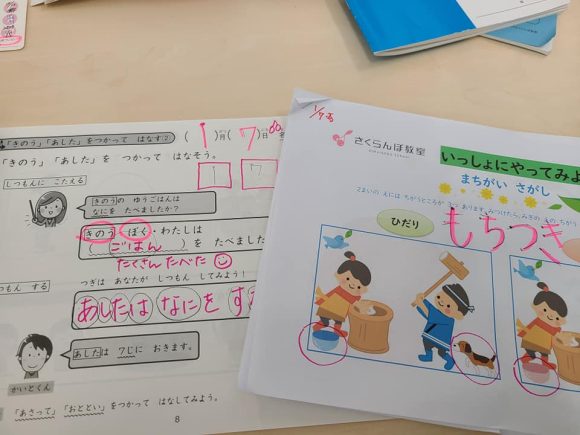 「きのう」「あした」をつかって はなす②
( 1 )月( 7 )日
「きのう」「あした」を つかって はなそう。
1 7
しつもんに こたえる
きのうの ゆうごはんは
なにを たべましたか?
きのう ぼく・わたしは
( ごはん )を たべました
たくさん たべた
する
つぎは あなたが しつもん してみよう!
あしたは なにを す
あしたは 7じに おきます。
かいとくん
「あさって」「おととい」をつかって はなしてみよう。
8
1/7
さくらんぼ教室
いっしょにやってみよ
まちがい さがし
ひだり
もちつき